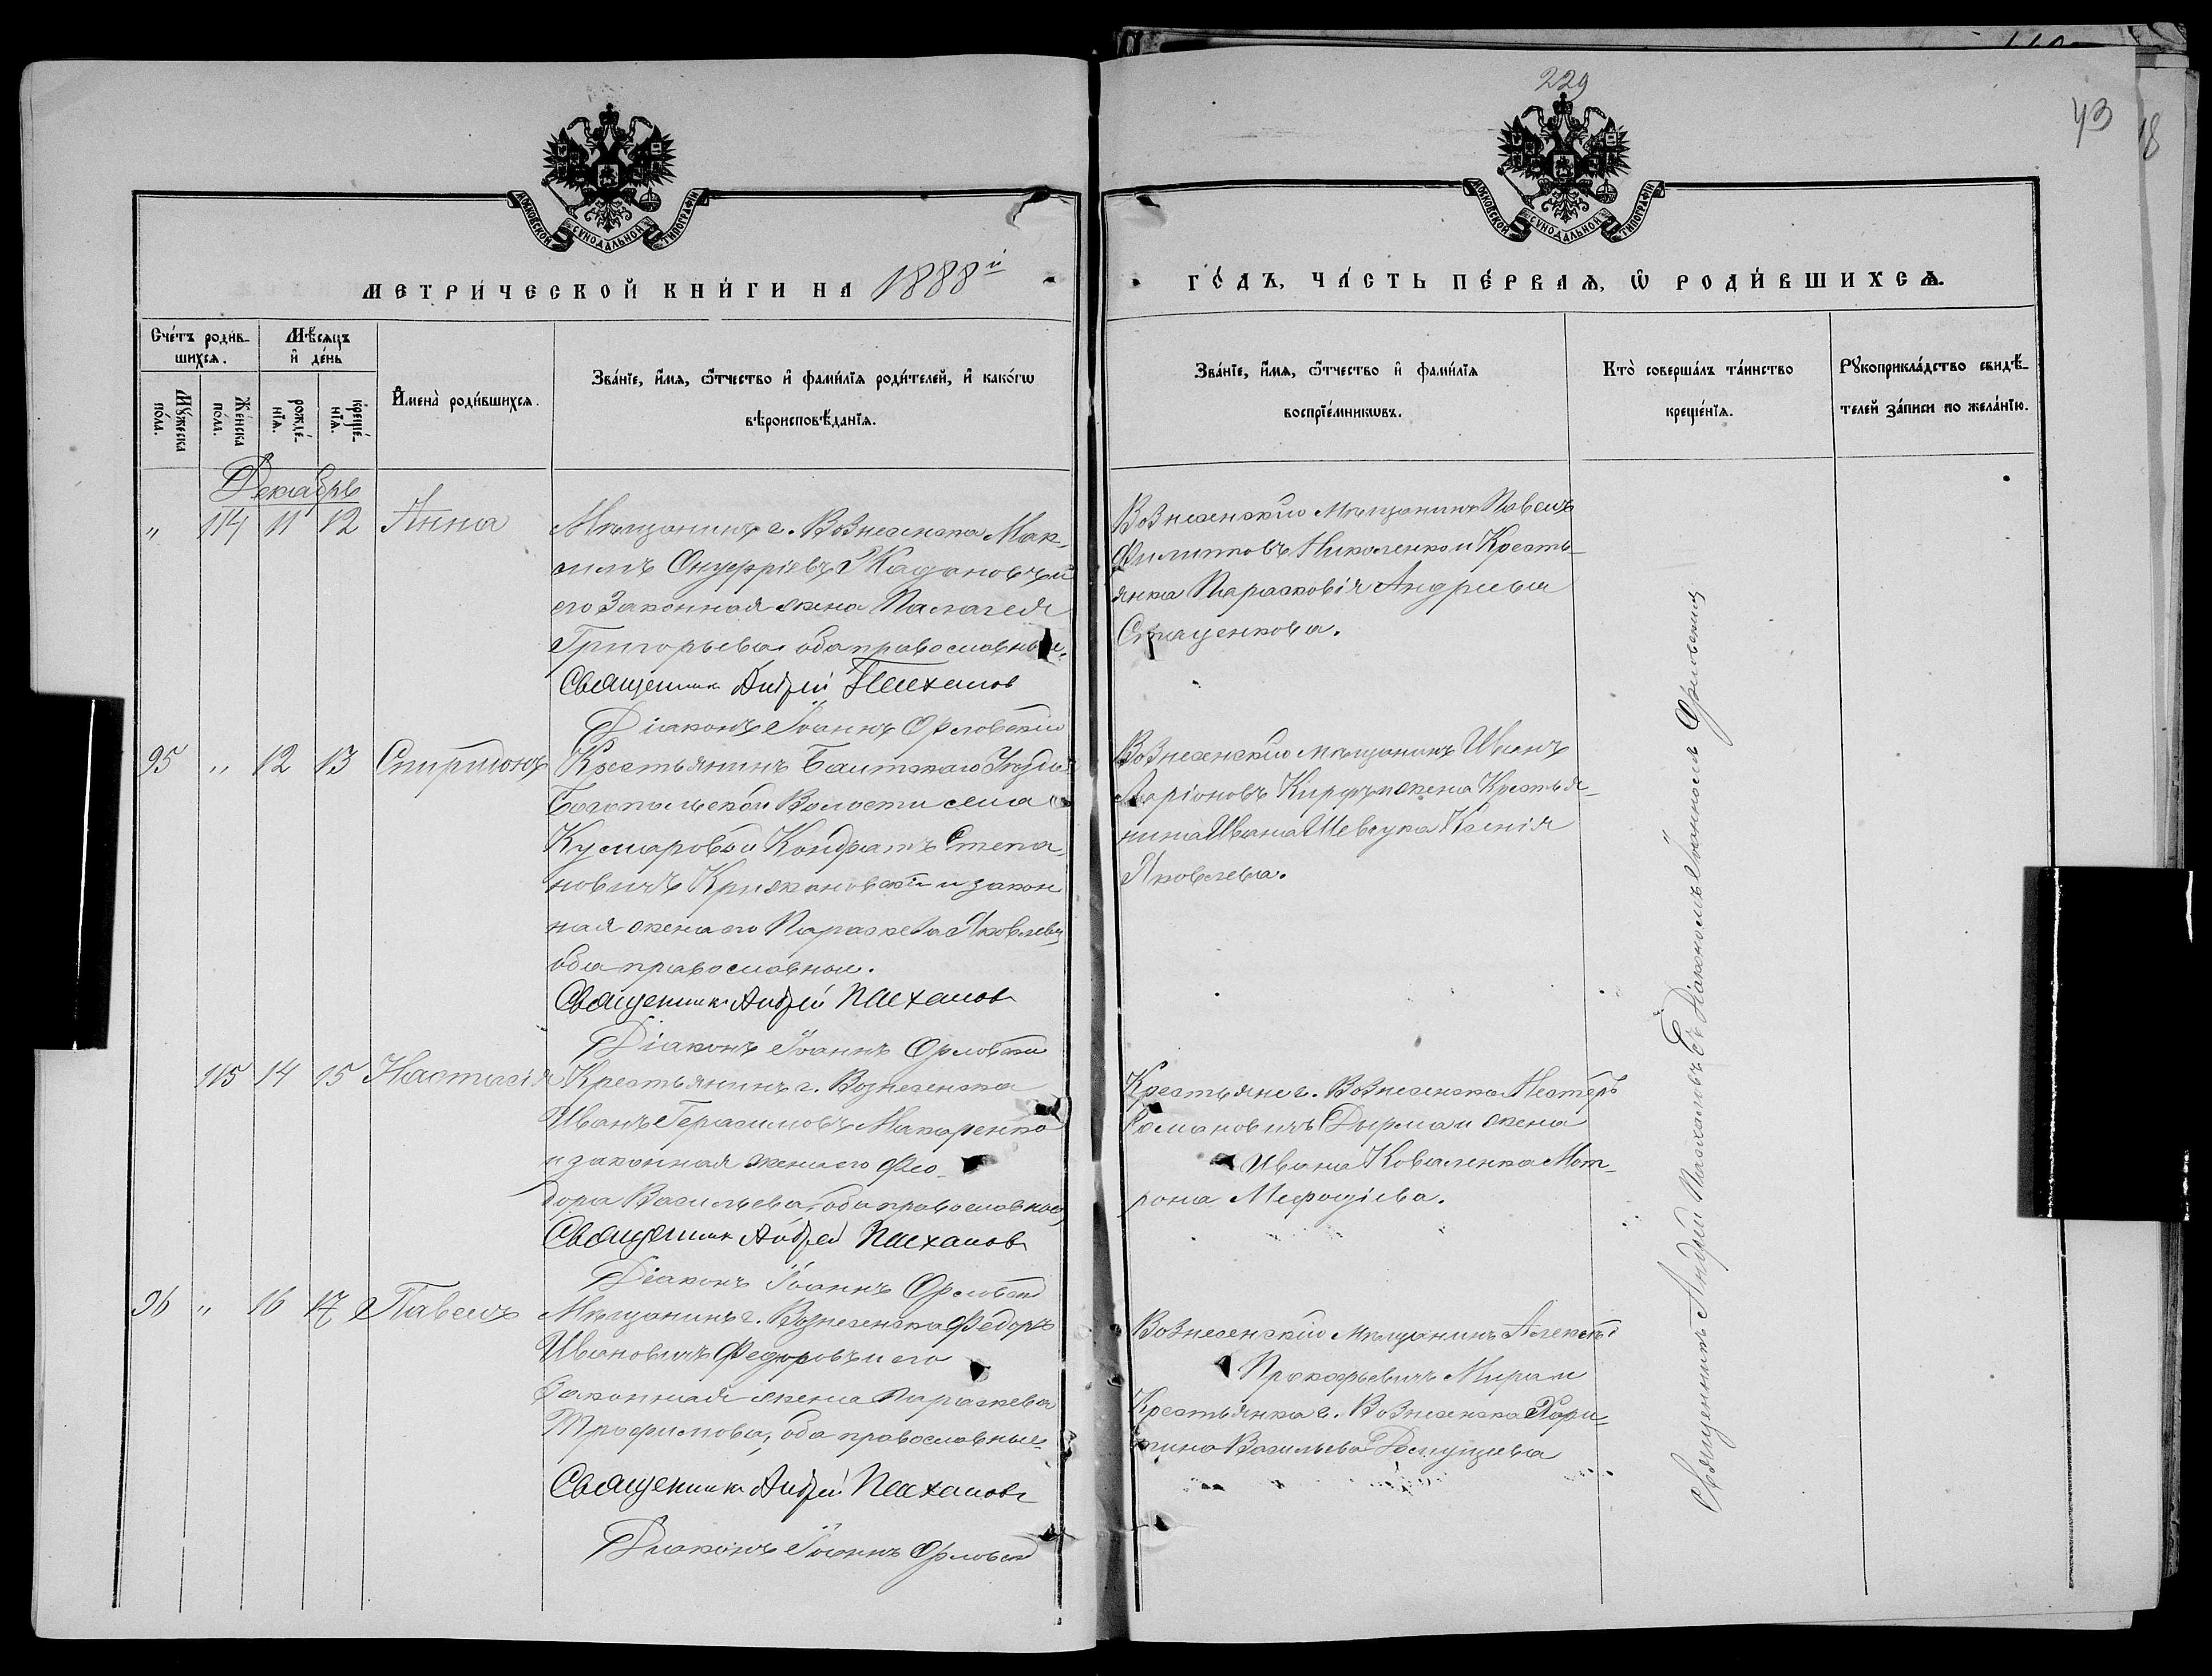 229
43
18
МОСКОВСКОЙ СѴНОДАЛЬНОЙ ТИПОГРАФІИ
МОСКОВСКОЙ СѴНОДАЛЬНОЙ ТИПОГРАФІИ
МЕТРИ́ЧЕСКОЙ КНИ́ГИ НА 1888й
ГО́ДЪ, ЧА́СТЬ ПЕ́РВАѦ, Ѡ҆ РОДИ́ВШИХСѦ.
Сче́тъ роди́в-
шихсѧ.
Мѣ́сѧцъ
и҆ де́нь
Мꙋ́жеска
по́ла.
Же́нска
по́ла.
рожде́-
нїѧ.
креще́-
нїѧ.
И҆мена̀ роди́вшихсѧ.
Зва́нїе, и҆́мѧ, ѻ҆́тчество и҆ фами́лїѧ роди́телей, и҆ како́гѡ
вѣроисповѣ́данїѧ.
Зва́нїе, и҆́мѧ, ѻ҆́тчество и҆ фами́лїѧ
воспрїе́мникѡвъ.
Кто̀ соверша́лъ та́инство
креще́нїѧ.
Рꙋкоприкла́дство свидѣ́-
телей за́писи по жела́нїю.
Декабрь
" 114 11 12 Анна
Мѣщанинъ г. Вознесенска Мак-
симъ Онуфріевъ Жадановъ и
его Законная жена Палагея
Григорьева, оба православные.
Священникъ Андрей Пасхалов
Діаконъ Іоаннъ Орловскій
Вознесенскій мѣщанинъ Павелъ
Филипповъ Николенко и Кресть-
янка Парасковія Андреева
95 " 12 13 Спиридонъ
Крестьянинъ Балтскаго Уѣзда
Богопольской Волости села
Кумаровой Кондратъ Степа-
новичъ Крижановскій и закон
ная жена его Параскева Яковлева
оба православной.
Священникъ Андрей Пасхалов
Діаконъ Іоаннъ Орловскій
Вознесенскій мѣщанинъ Иванъ
Ларіоновъ и жена Крестья-
нина Ивана Шевчука Ксенія
Яковлева.
115 14 15 Настасія
Крестьянинъ г. Вознесенска
Иванъ Герасимовъ Макаренко
и законная жена его Фео-
дора Васильева, оба православное
Священникъ Андрей Пасхалов
Діаконъ Іоаннъ Орловскій
Крестьяне г. Вознесенска Нестеръ
Романовичъ Дырма и жена
Ивана Коваленка Мот-
рона Мефодіева.
96 " 16 17 Павелъ
Мѣщанинъ г. Вознесенска Федоръ
Ивановичъ Федоровъ и его
Законная жена Параскева
Трофимова, оба православные.
Священникъ Андрей Пасхалов
Діаконъ Іоаннъ Орловскій
Вознесенскій мѣщанинъ Алексѣй
Прокофьевичъ Мира и
Крестьянка г. Вознесенска Хари-
тина Васильева
Священникъ Андрей Пасхаловъ Съ Діакономъ Іоанномъ Орловскимъ